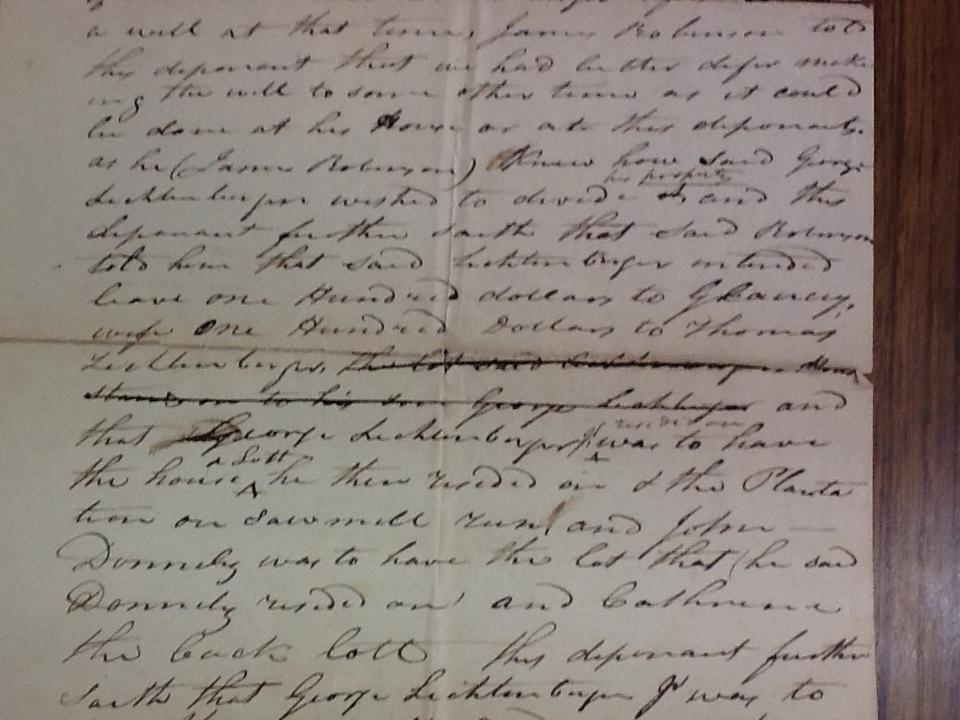 a will at that time, James Robinson told
this deponant that we had better defer mak
ing the will to some other time as it could
be done at his House or at this deponants.
as he (James Robinson) Knew how said George
his property
Lichtenberger wished to divide it, and this
deponant further saith that said Robinson
told him that said Lichtenberger intended
leave one Hundred dollars to
wife One Hundred Dollars to Thomas
Lichtenberger, the lot said Lichtenberger
to his son George Lichtenberger and
that George Lichtenberger Jr was to have
a Lott
the house he then resided on & the Planta
tion on Sawmill run, and John
Donnely was to have the lot that (he said
Donnely resided on) and Catherine
the back lott this deponant further
saith that George Lichtenberger Jr was to